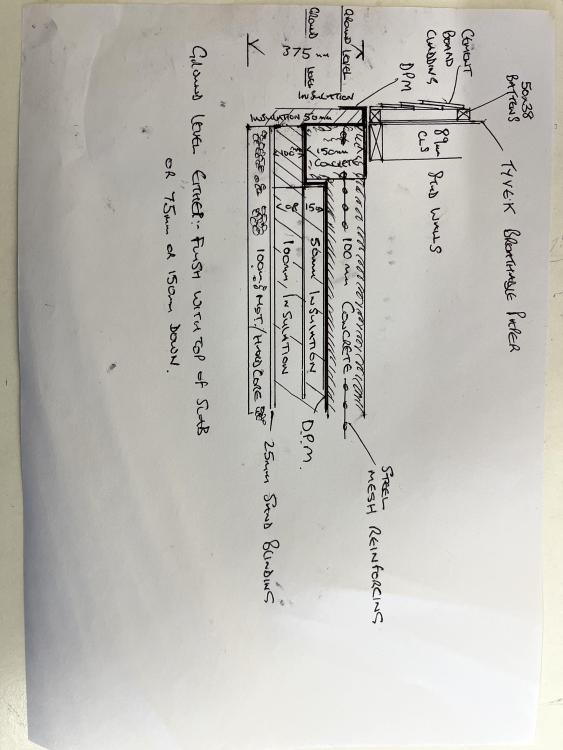 CEMENT
BOARD
CLADDING
50x38
BATTENS
TYVEK BREATHABLE PAPER
DPM
89mm
CLS
STUD WALLS
GROUND LEVEL
GROUND
LEVEL
375
INSULATION
INSULATION 50mm
150mm
CONCRETE
100mm
100 mm CONCRETE
50mm INSULATION
100mm INSULATION
100mm MOT/HARDCORE
STEEL
MESH REINFORCING
D.P.M.
25mm SAND BLINDING
GROUND LEVEL EITHER:- FLUSH WITH TOP OF SLAB
OR 75mm OR 150mm DOWN.